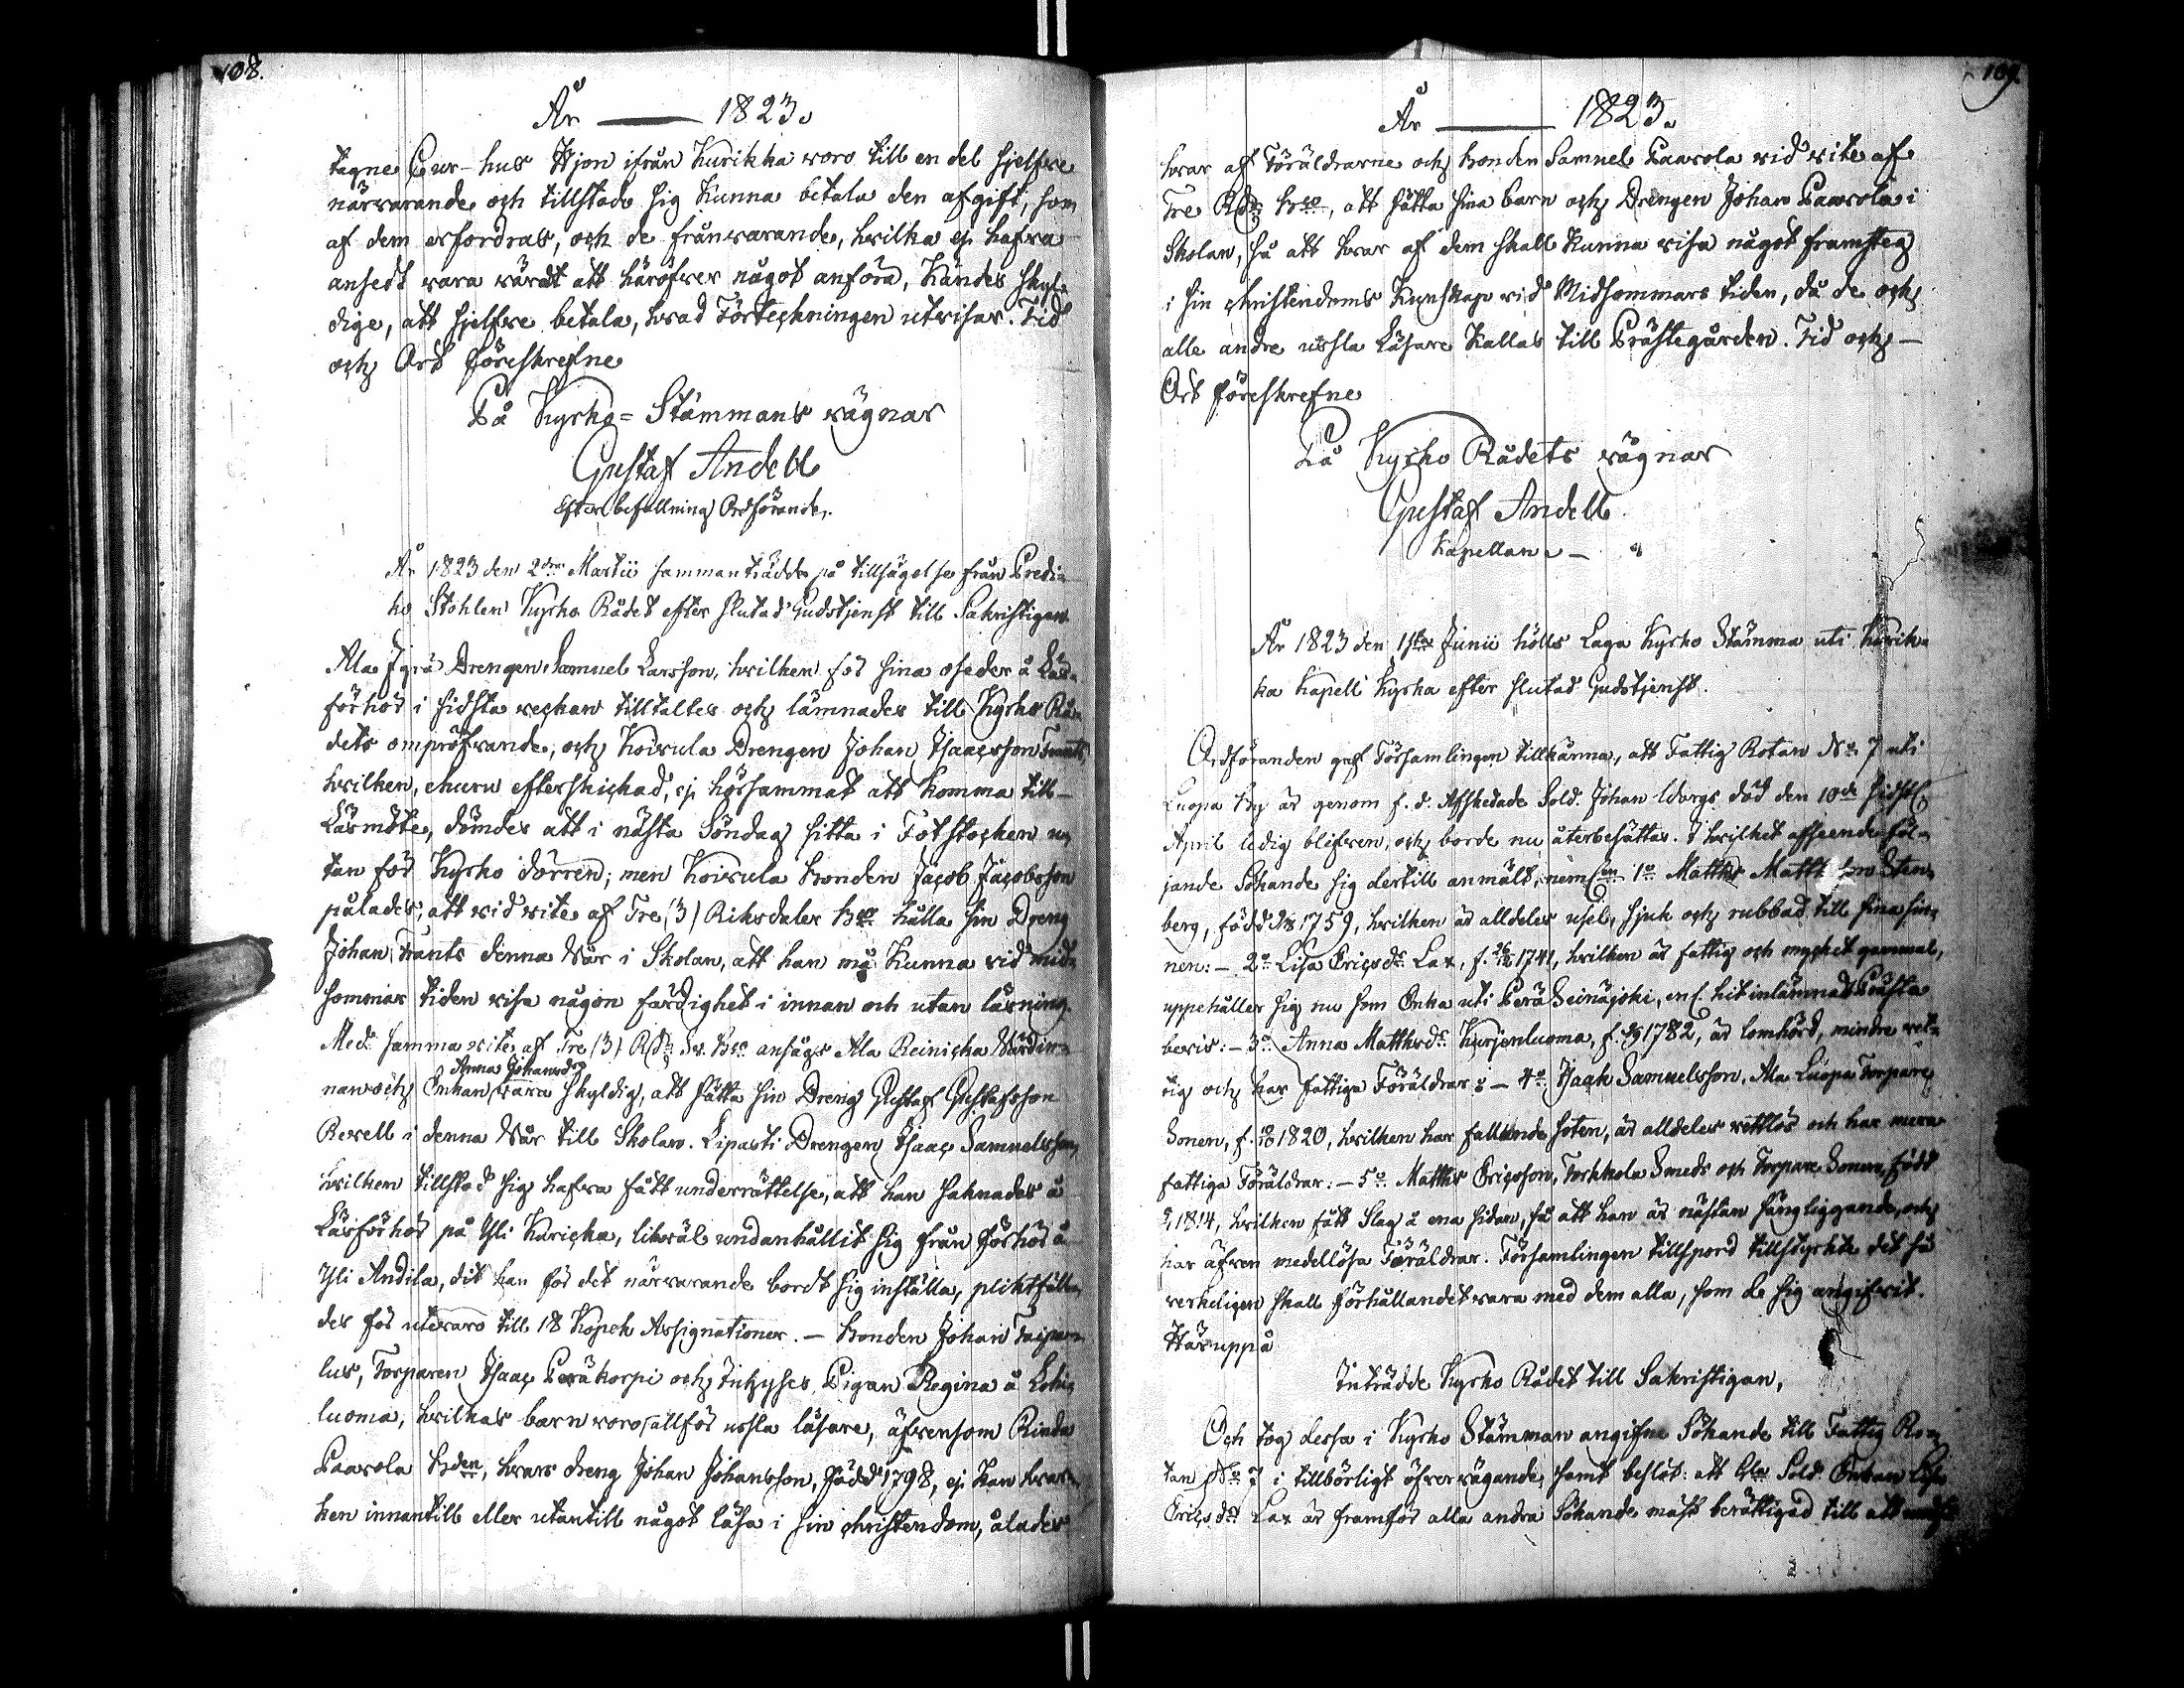 108.
År — 1823.
tagne Cur-hus Hjon ifrån Kurikka woro till en del sjelfve
närvarande och tillstodo sig kunna betala den afgift, som
af dem erfordras, och de frånvarande, hvilka ej hafva
ansedt vara värdt att häröfver något anföra, kändes skyl-
dige, att sjelfve betala, hvad Förteckningen utvisar. Tid
och Ort föreskrefne
På Kyrko-Stämmans vägnar
Gustaf Andell
efter befallning Ordförande.
År 1823 den 2dra Martii sammanträdde på tillsägelse från Predi-
ko Stohlen Kyrko Rådet efter slutad Gudstjenst till Sakristigan.
Ala Jyrä Drengen Samuel Larsson, hvilken för sina oseder å Läs-
förhör i sidsta veckan tilltaltes och lämnades till Kyrko Rå-
dets ompröfvande, och Koivula Drengen Johan Isaacsson Trants,
hvilken, ehuru efterskickad, ej hörsammat att komma till
Läsmöte, dömdes att i nästa Söndag sitta i Fotstocken u-
tan för Kyrko dörren; men Koivula Bonden Jacob Jacobsson
pålades, att vid vite af Tre (3) Riksdaler Bco hålla sin Dreng
Johan Trants denna Vår i Skolan, att han må kunna vid mid-
sommars tiden visa någon färdighet i innan och utan läsning.
Med samma vite af Tre (3) Rdr Sv. Bco ansågs Ala Reinicka Värdin-
nan och Enkan Anna Johansdr vara skyldig, att sätta sin Dreng Gustaf Gustafsson
Revell i denna Vår till Skolan. Lipasti Drengen Isaac Samuelsson,
hvilken tillstod sig hafva fått underrättelse, att han saknades å
Läsförhör på Yli Kuricka, likväl undanhållit sig från förhör å
Yli Andila, dit han för det närvarande bordt sig inställa, pliktfäll-
des för utevaro till 18 Kopek Assignationer. — Bonden Johan Taipa-
lus, Torparen Isaac Peräkorpi och Inhyses Pigan Regina å Lohi-
luoma, hvilkas barn woro allför ussla läsare, äfvensom Rinda
Paavola Bden, hvars dreng Johan Johansson, född 1798, ej kan hvar-
ken innantill eller utantill något läsa i sin christendom, ålades
109.
År — 1823.
hvar af Föräldrarne och bonden Samuel Paavola vid vite af
Tre Rdr Bco, att sätta sina barn och Drengen Johan Paavola i
Skolan, så att hvar af dem skall kunna visa något framsteg
i sin christendoms kunskap vid Midsommars tiden, då de och
alle andre ussla Läsare kallas till Prästegården. Tid och —
Ort föreskrefne
På Kyrko Rådets vägnar
Gustaf Andell
Kapellan. —
År 1823 den 1sta Junii hölls Laga Kyrko Stämma uti Kurik-
ka Kapell Kyrka efter slutad Gudstjenst.
Ordföranden gaf Församlingen tillkänna, att Fattig Rotan No 7 uti
Luopa By är genom f. d. Afskedade Sold. Johan död den 10de sidstl.
April ledig blifven, och borde nu återbesättas. I hvilket afseende föl-
jande Sökande sig dertill anmält, neml. 1o Matths Matth son Sten-
berg, född 1759, hvilken är alldeles usel, sjuk och rubbad till sina sin-
nen: — 2o Lisa Ericsdr Lax, f. 1741, hvilken är fattig och mycket gammal,
uppehåller sig nu som Enka uti Perä Seinäjoki, enl. hit inlämnad Prästa
bevis: — 3o Anna Matthsdr Kurjenluoma, f. 1782, är lomhörd, mindre vet-
tig och har fattiga Föräldrar: — 4o Isaak Samuelsson, Ala Luopa Torpare
Sonen, f. 1820, hvilken har fallande soten, är alldeles vettlös och har mera
fattiga Föräldrar: — 5o Matths Ericsson, Torkkola Smeds och Torpare Sonen, född
1814, hvilken fått Slag å ena sidan, så att han är nästan sängliggande, och
har äfven medellösa Föräldrar. Församlingen tillspord tillstyrkte det så
verkeligen skall förhållandet vara med dem alla, som de sig angifvit.
Häruppå
Inträdde Kyrko Rådet till Sakristigan,
Och tog dessa i Kyrko Stämman angifne Sökande till Fattig Ro-
tan No 7 i tillbörligt öfvervägande, samt beslöt: att Sold. Enkan Lisa
Ericsdr Lax är framför alla andra Sökande mäst berättigad till att